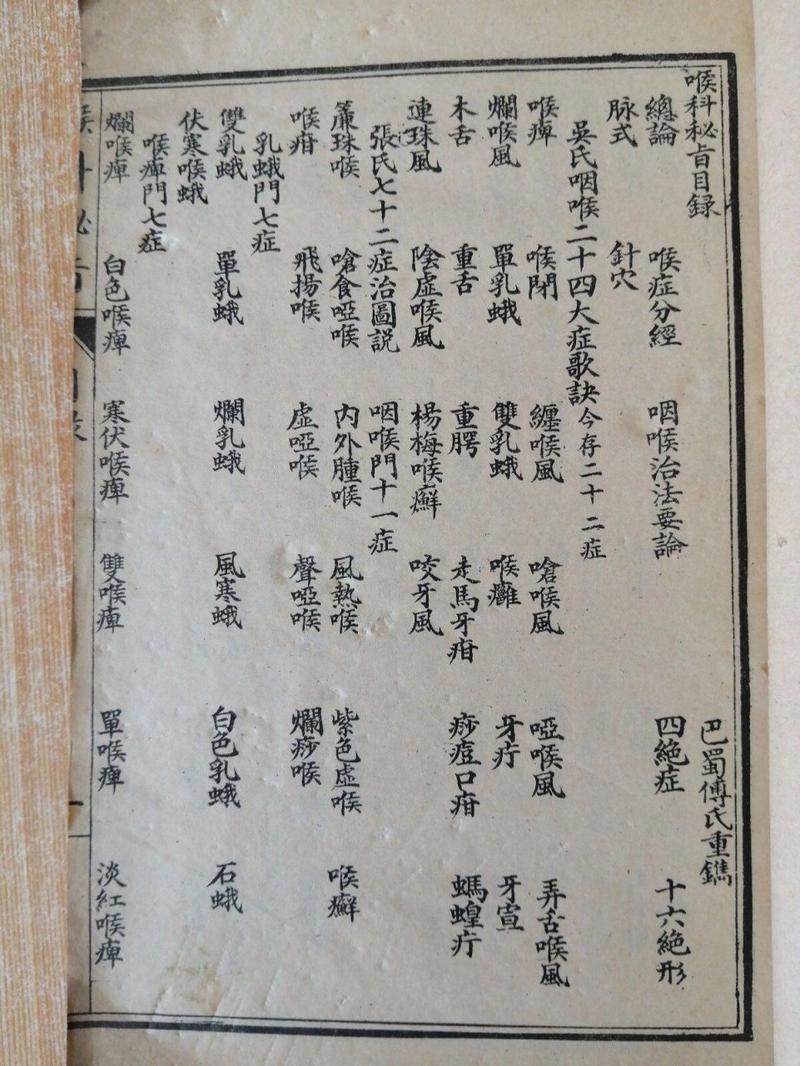 喉科秘旨目録
巴蜀傅氏重鐫
總論 喉症分經 咽喉治法要論 四絶症 十六絶形
脉式 針穴
吳氏咽喉二十四大症歌訣今存二十二症
喉痺 喉閉 纏喉風 嗆喉風 啞喉風 弄舌喉風
爛喉風 單乳蛾 雙乳蛾 喉癰 牙疔 牙宣
木舌 重舌 重腭 走馬牙疳 痧痘口疳 螞蝗疔
連珠風 陰虛喉風 楊梅喉癬 咬牙風
張氏七十二症治圖説 咽喉門十一症
簾珠喉 嗆食啞喉 内外腫喉 風熱喉 紫色虛喉 喉癬
喉疳 飛揚喉 虛啞喉 聲啞喉 爛痧喉
乳蛾門七症
雙乳蛾 單乳蛾 爛乳蛾 風寒蛾 白色乳蛾 石蛾
伏寒喉蛾
喉痺門七症
爛喉痺 白色喉痺 寒伏喉痺 雙喉痺 單喉痺 淡紅喉痺